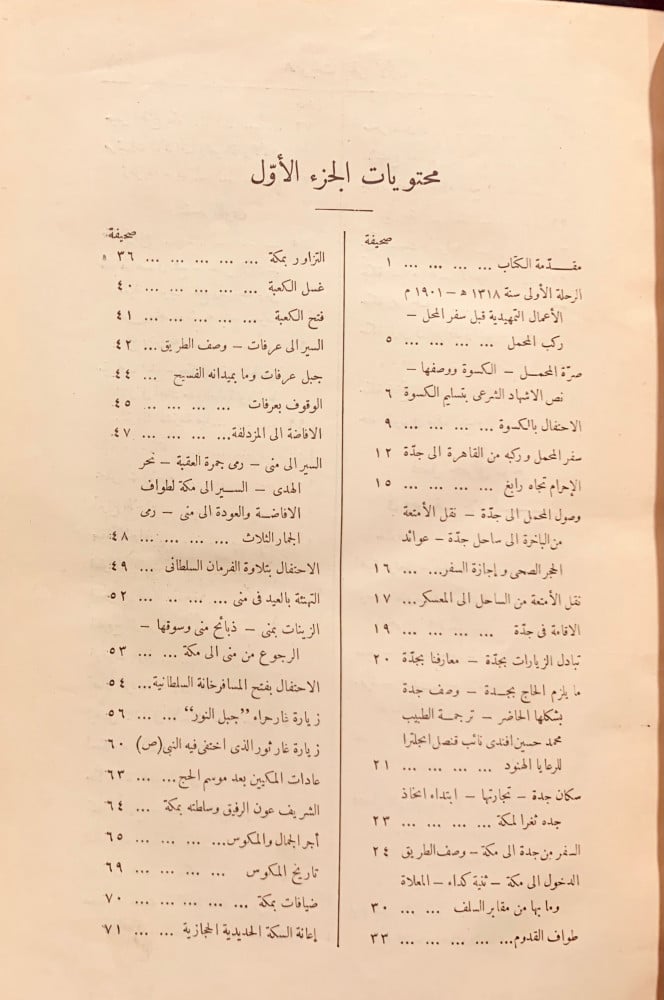 محتويات الجزء الأوّل
صحيفة
مقدّمة الكتاب ... ... ... ... ١
الرحلة الأولى سنة ١٣١٨ هـ – ١٩٠١ م
الأعمال التمهيدية قبل سفر المحمل –
ركب المحمل ... ... ... ... ٥
صرّة المحمل – الكسوة ووصفها –
نص الاشهاد الشرعى بتسليم الكسوة ٦
الاحتفال بالكسوة ... ... ... ... ٩
سفر المحمل وركبه من القاهرة الى جدّة ١٢
الإحرام تجاه رابغ ... ... ... ... ١٥
وصول المحمل الى جدّة – نقل الأمتعة
من الباخرة الى ساحل جدّة – عوائد
الحجر الصحى وإجازة السفر... ... ... ١٦
نقل الأمتعة من الساحل الى المعسكر... ١٧
الاقامة فى جدّة ... ... ... ... ١٩
تبادل الزيارات بجدّة – معارفنا بجدّة ٢٠
ما يلزم الحاج بجدة – وصف جدة
بشكلها الحاضر – ترجمة الطبيب
محمد حسين افندى نائب قنصل انجلترا
للرعايا الهنود ... ... ... ... ٢١
سكان جدة – تجارتها – ابتداء اتخاذ
جده ثغرا لمكة ... ... ... ... ٢٣
السفر من جدة الى مكة – وصف الطريق ٢٤
الدخول الى مكة – ثنية كداء – المعلاة
وما بها من مقابر السلف ... ... ٣٠
طواف القدوم... ... ... ... ... ٣٣
صحيفة
التزاور بمكة ... ... ... ... ... ٣٦
غسل الكعبة ... ... ... ... ... ٤٠
فتح الكعبة ... ... ... ... ... ٤١
السير الى عرفات – وصف الطريق ... ٤٢
جبل عرفات وما بميدانه الفسيح ... ٤٤
الوقوف بعرفات ... ... ... ... ٤٥
الافاضة الى المزدلفة... ... ... ... ٤٧
السير الى منى – رمى جمرة العقبة – نحر
الهدى – السير الى مكة لطواف
الافاضة والعودة الى منى – رمى
الجمار الثلاث ... ... ... ... ٤٨
الاحتفال بتلاوة الفرمان السلطانى ... ٤٩
التهنئة بالعيد فى منى ... ... ... ... ٥٢
الزينات بمنى – ذبائح منى وسوقها –
الرجوع من منى الى مكة ... ... ٥٣
الاحتفال بفتح المسافرخانة السلطانية... ٥٤
زيارة غار حراء "جبل النور" ... ... ٥٦
زيارة غار ثور الذى اختفى فيه النبى (ص) ٦٠
عادات المكيين بعد موسم الحج ... ... ٦٣
الشريف عون الرفيق وسلطته بمكة ... ٦٤
أجر الجمال والمكوس... ... ... ... ٦٥
تاريخ المكوس ... ... ... ... ٦٩
ضيافات بمكة ... ... ... ... ... ٧٠
إعانة السكة الحديدية الحجازية ... ... ٧١